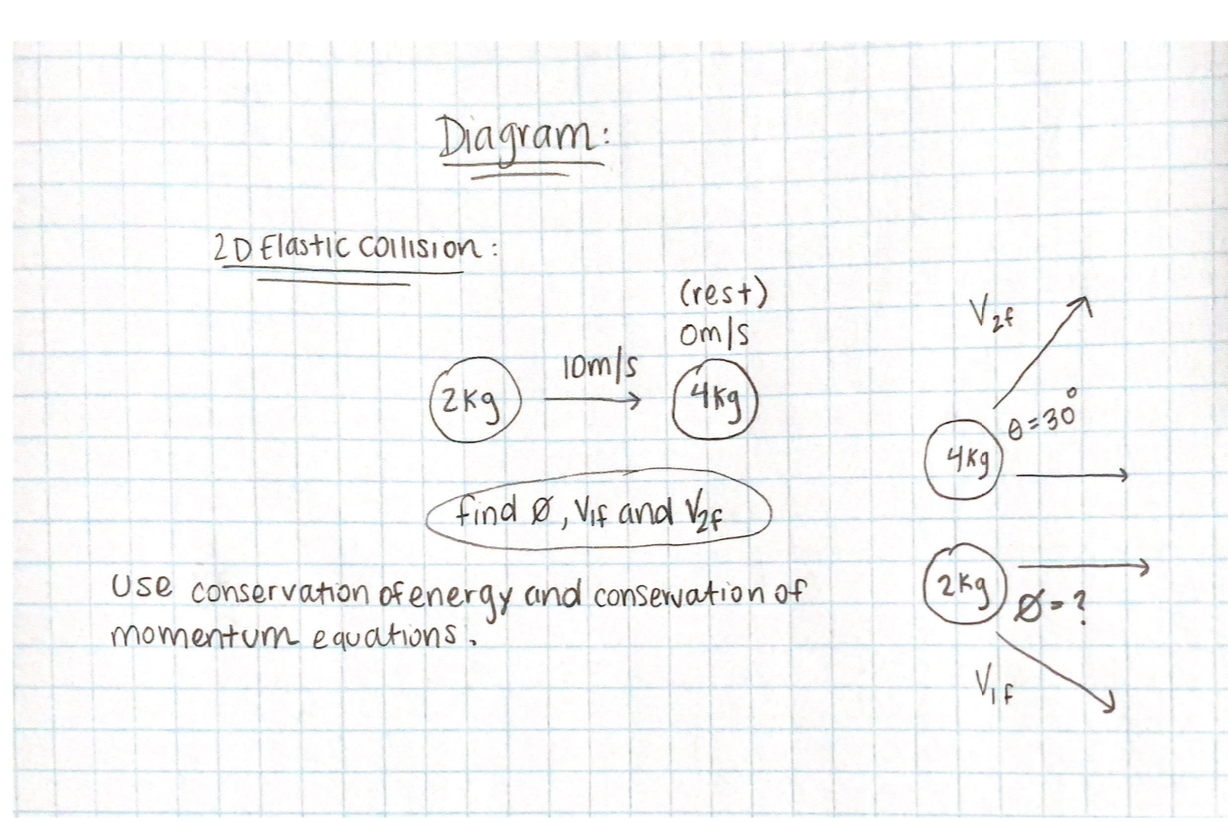 Diagram:
2D Elastic Collision:
(rest)
0m/s
10m/s
2kg
4kg
find Ø, V1f and V2f
Use conservation of energy and conservation of
momentum equations.
V2f
θ=30°
4kg
2kg
Ø=?
V1f